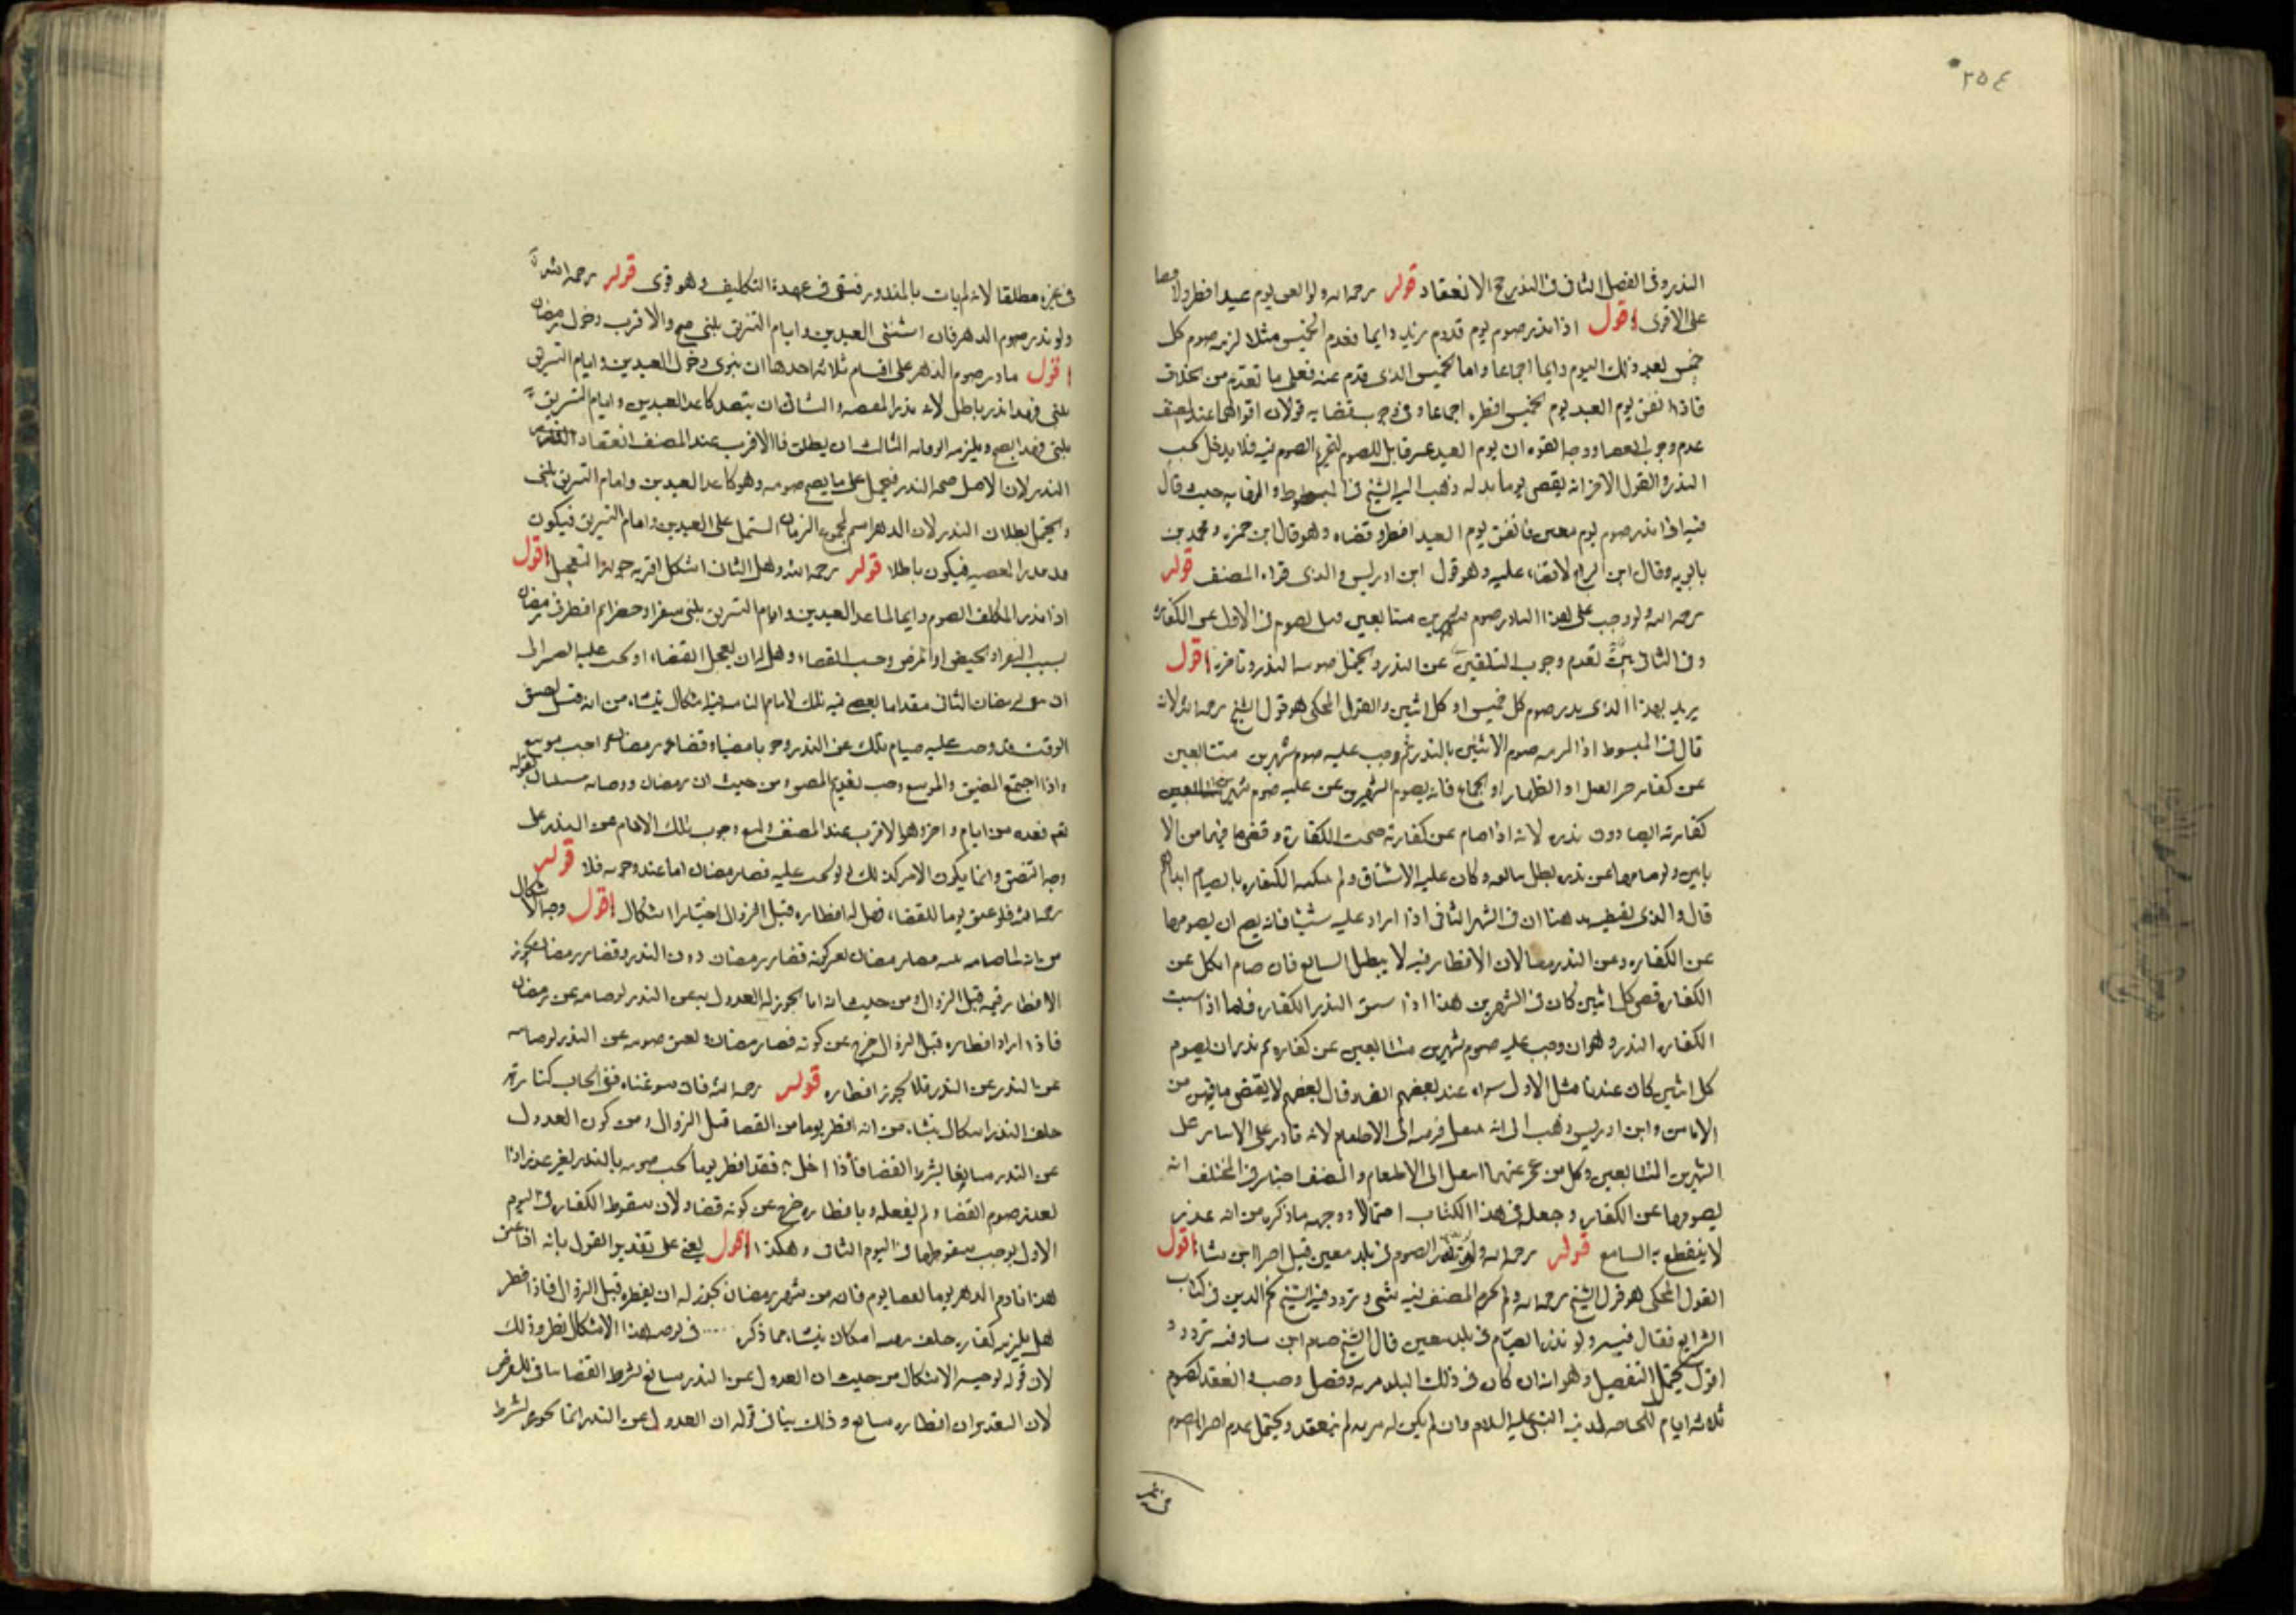 ٢٥٤
النذر وفى الفصل الثانى فى النذر رجح الانعقاد قوله رحمه الله ولو اتفق يوم عيد افطر ولا قضا
على الاقوى اقول اذا نذر صوم يوم قدوم زيد دايما فقدم الخميس مثلا لزمه صوم كل
خميس بعد ذلك اليوم دايما اجماعا واما الخميس الذى قدم فيه فعلى ما تقدم من الخلاف
فاذا اتفق يوم العيد يوم الخميس افطره اجماعا وفى وجوب قضايه قولان اقواهما عند المصنف
عدم وجوب القضا ووجه القوه ان يوم العيد غير قابل للصوم لتحريم الصوم فيه فلا يدخل تحت
النذر والقول الاخر انه يقضى يوما بدله وذهب اليه الشيخ فى المبسوط والنهايه حيث قال
فيه اذا نذر صوم يوم معين فاتفق يوم العيد افطر وقضاه وهو قال ابن حمزه ومحمد بن
بابويه وقال ابن البراج لا قضاء عليه وهو قول ابن ادريس والذى قواه المصنف قوله
رحمه الله ولو وجب على هذا الناذر صوم شهرين متتابعين قيل يصوم فى الاول عن الكفاره
وفى الثانى عن النذر ويحتمل صومه النذر وتاخره اقول
يريد بهذا الذى نذر صوم كل خميس او كل اثنين والقول المحكى هو قول الشيخ رحمه الله لانه
قال فى المبسوط اذا لزمه صوم الاثنين بالنذر ثم وجب عليه صوم شهرين متتابعين
عن كفاره القتل او الظهار او الجماع فانه يصوم الشهرين عن
كفارته ايضا دون نذره لانه اذا صام عن كفارته صحت الكفارة وقضى ما فيهما من الا
ثانين ولو صامهما عن نذره بطل تتابعه وكان عليه الاستيناف ولم يمكنه الكفاره بالصيام ابدا
قال والذى يقتضيه مذهبنا ان فى الشهر الثانى اذا زاد عليه شيئا فانه يصح ان يصومها
عن الكفاره وعن النذر معا لان الافطار فيه لا يبطل التتابع فان صام الكل عن
الكفاره قضى كل اثنين كان فى الشهرين هذا اذا سبق النذر الكفاره فاما اذا سبقت
الكفاره النذر وهو ان وجب عليه صوم شهرين متتابعين عن كفاره ثم نذر ان يصوم
كل اثنين كان عندنا مثل الاول سواء عند بعضهم وقال بعضهم لا يقضى ما فيهن من
الاثانين وابن ادريس ذهب الى انه ينتقل فرضه الى الاطعام لانه غير قادر على الاتيان على
الشهرين المتتابعين وكل من عجز عنهما انتقل الى الاطعام والمصنف اختار فى المختلف انه
يصومهما عن الكفاره وجعله فى هذا الكتاب احتمالا ووجهه ما ذكره من انه عذر
لا ينقطع به التتابع قوله رحمه الله ولو نذر الصوم فى بلد معين قيل اجزا اين شا اقول
القول المحكى هو قول الشيخ رحمه الله ولم يجزم المصنف فيه بشى وتردد فيه الشيخ نجم الدين فى كتاب
الشرايع فقال فيه ولو نذر الصيام فى بلد معين قال الشيخ صام اين شا وفيه تردد
اقول يحتمل التفصيل وهو انه ان كان فى ذلك البلد مزيه وفضل وجب وانعقد كصوم
ثلاثه ايام للحاجه بمدينه النبى عليه السلام وان لم يكن له مزيه لم ينعقد ويحتمل عدم اجزا الصوم
فى غيره مطلقا لانه لم يات بالمنذور فيبقى فى عهدة التكليف وهو قوى قوله رحمه الله
ولو نذر صوم الدهر فان استثنى العيدين وايام التشريق بمنى صح والاقرب دخول رمضان
اقول ناذر صوم الدهر على اقسام ثلاثه احدها ان ينوى دخول العيدين وايام التشريق
بمنى فهذا نذر باطل لانه نذر المعصيه والثانى ان يقصد ما عدا العيدين وايام التشريق
بمنى فهذا يصح ويلزمه الوفا به الثالث ان يطلق فالاقرب عند المصنف انعقاد
النذر لان الاصل صحه النذر فيحمل على ما يصح صومه وهو ما عدا العيدين وايام التشريق بمنى
ويحتمل بطلان النذر لان الدهر اسم لجميع الزمان المشتمل على العيدين وايام التشريق فيكون
قد نذر المعصيه فيكون باطلا قوله رحمه الله وهل الثانى اشكل اقربه جواز التعجيل اقول
اذا نذر المكلف الصوم دايما ما عدا العيدين وايام التشريق بمنى سفرا وحضرا ثم افطر فى رمضان
بسبب السفر او الحيض او المرض وجب القضاء وهل له ان يعجل القضاء او يجب عليه الصبر الى
ان يبقى لرمضان الثانى مقدار ما يقضى فيه تلك الايام الفايته فيه اشكال ينشاء من انه قبل تضيق
الوقت قد وجب عليه صيام تلك عن النذر وجوبا مضيقا وقضاء رمضان واجب موسع
واذا اجتمع المضيق والموسع وجب تقديم المضيق ومن حيث ان رمضان وقضاه مستثنيان لقوله
تعالى فعده من ايام اخر وهو الاقرب عند المصنف ولمنع وجوب تلك الايام عن النذر على
وجه التضيق وانما يكون الامر كذلك لو لم يجب عليه قضا رمضان اما عند وجوبه فلا قوله
رحمه الله فلو عين يوما للقضاء فهل له افطاره قبل الزوال اختيارا اشكال اقول وجه الاشكال
من انه لما صامه بنيه قضا رمضان تعين كونه قضا رمضان دون النذر وقضا رمضان يجوز
الافطار فيه قبل الزوال ومن حيث انه انما يجوز له العدول به عن النذر لو صامه عن رمضان
فاذا اراد افطاره قبل الزوال خرج عن كونه قضا رمضان وتعين صومه عن النذر لو صامه
عن النذر فلا يجوز افطاره قوله رحمه الله فان سوغناه ففى ايجاب كفارة
خلف النذر اشكال ينشاء من انه افطر يوما من القضا قبل الزوال ومن كون العدول
عن النذر سايغا بشرط القضا فاذا اخل به فقد افطر يوما يجب صومه بالنذر لغير عذر اذ
العذر صوم القضا ولم يفعله وبافطاره خرج عن كونه قضا ولان سقوط الكفاره فى اليوم
الاول يوجب سقوطها فى اليوم الثانى وهكذا اقول يعنى على تقدير القول بانه اذا عين
هذا ناذر الدهر يوما لقضا يوم فاته من شهر رمضان يجوز له ان يفطره قبل الزوال فاذا افطر
هل يلزمه كفاره خلف نذره اشكال ينشاء مما ذكر .... فى توجيه هذا الاشكال نظر وذلك
لان قوله توجيه الاشكال من حيث ان العدول عن النذر سايغ بشرط القضا ينافى الفرض
لان التقدير ان افطاره سايغ وذلك ينافى قوله ان العدول عن النذر انما يجوز بشرط